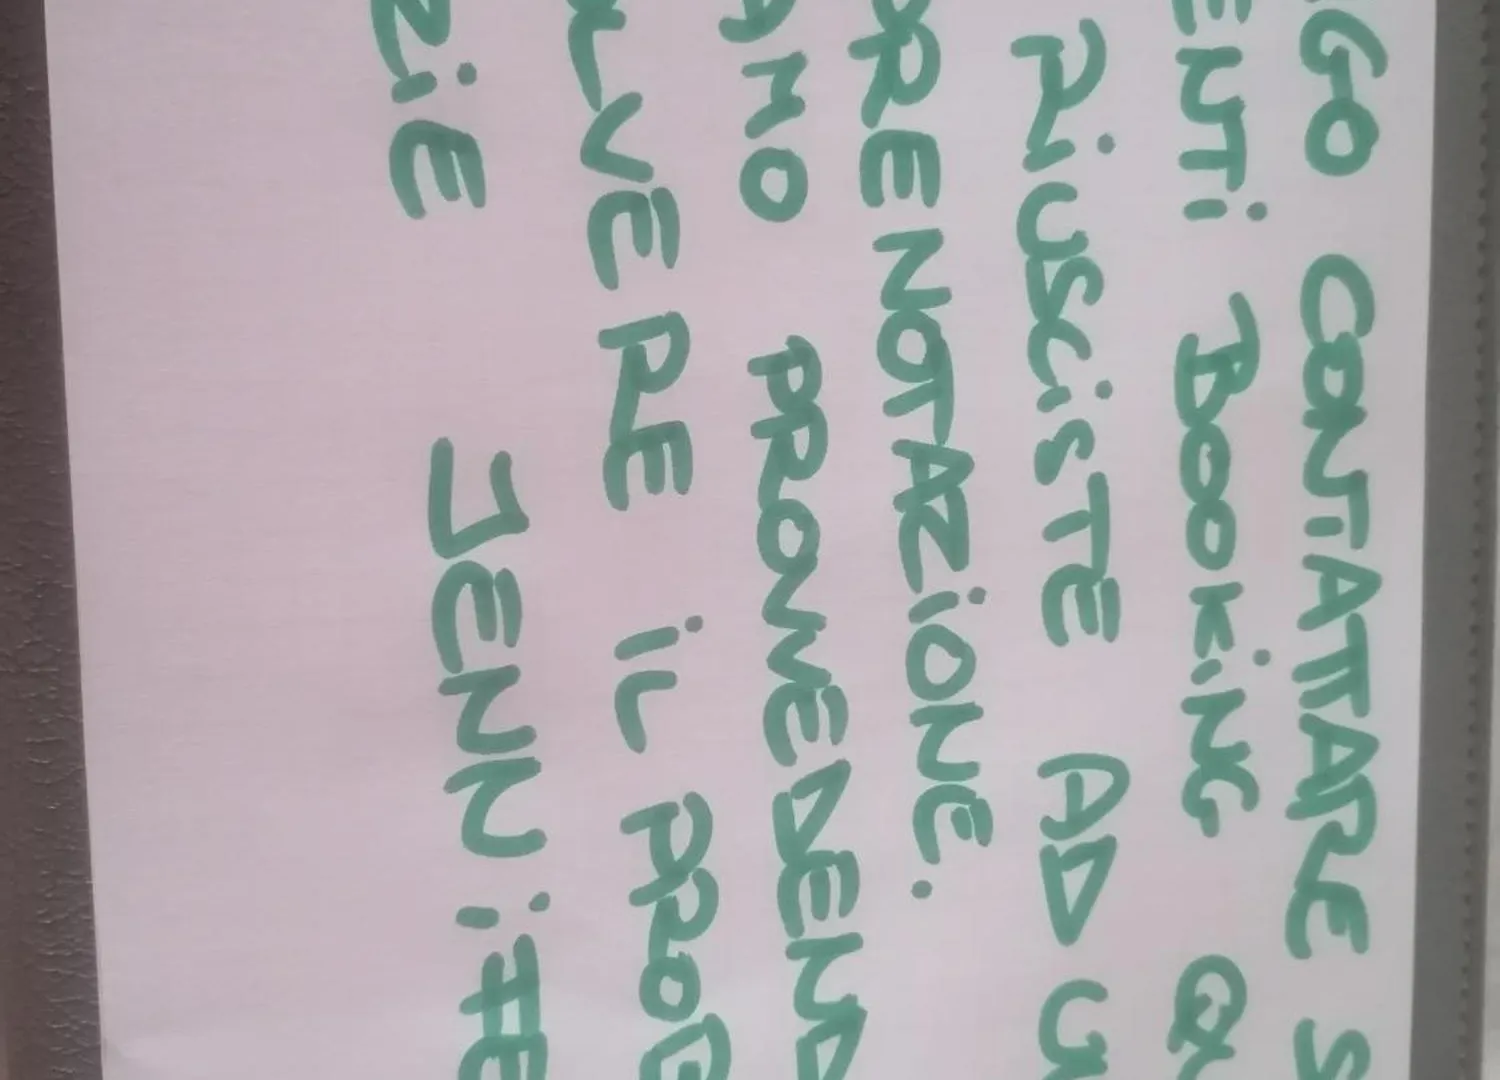 GO CONTATTARE S
ENTi BOOKiNG Q
RiUSCiSTE AD U
PRENOTAZiONE.
AMO PROVVEDEND
OLVERE iL PROB
ZiE JENNiFE